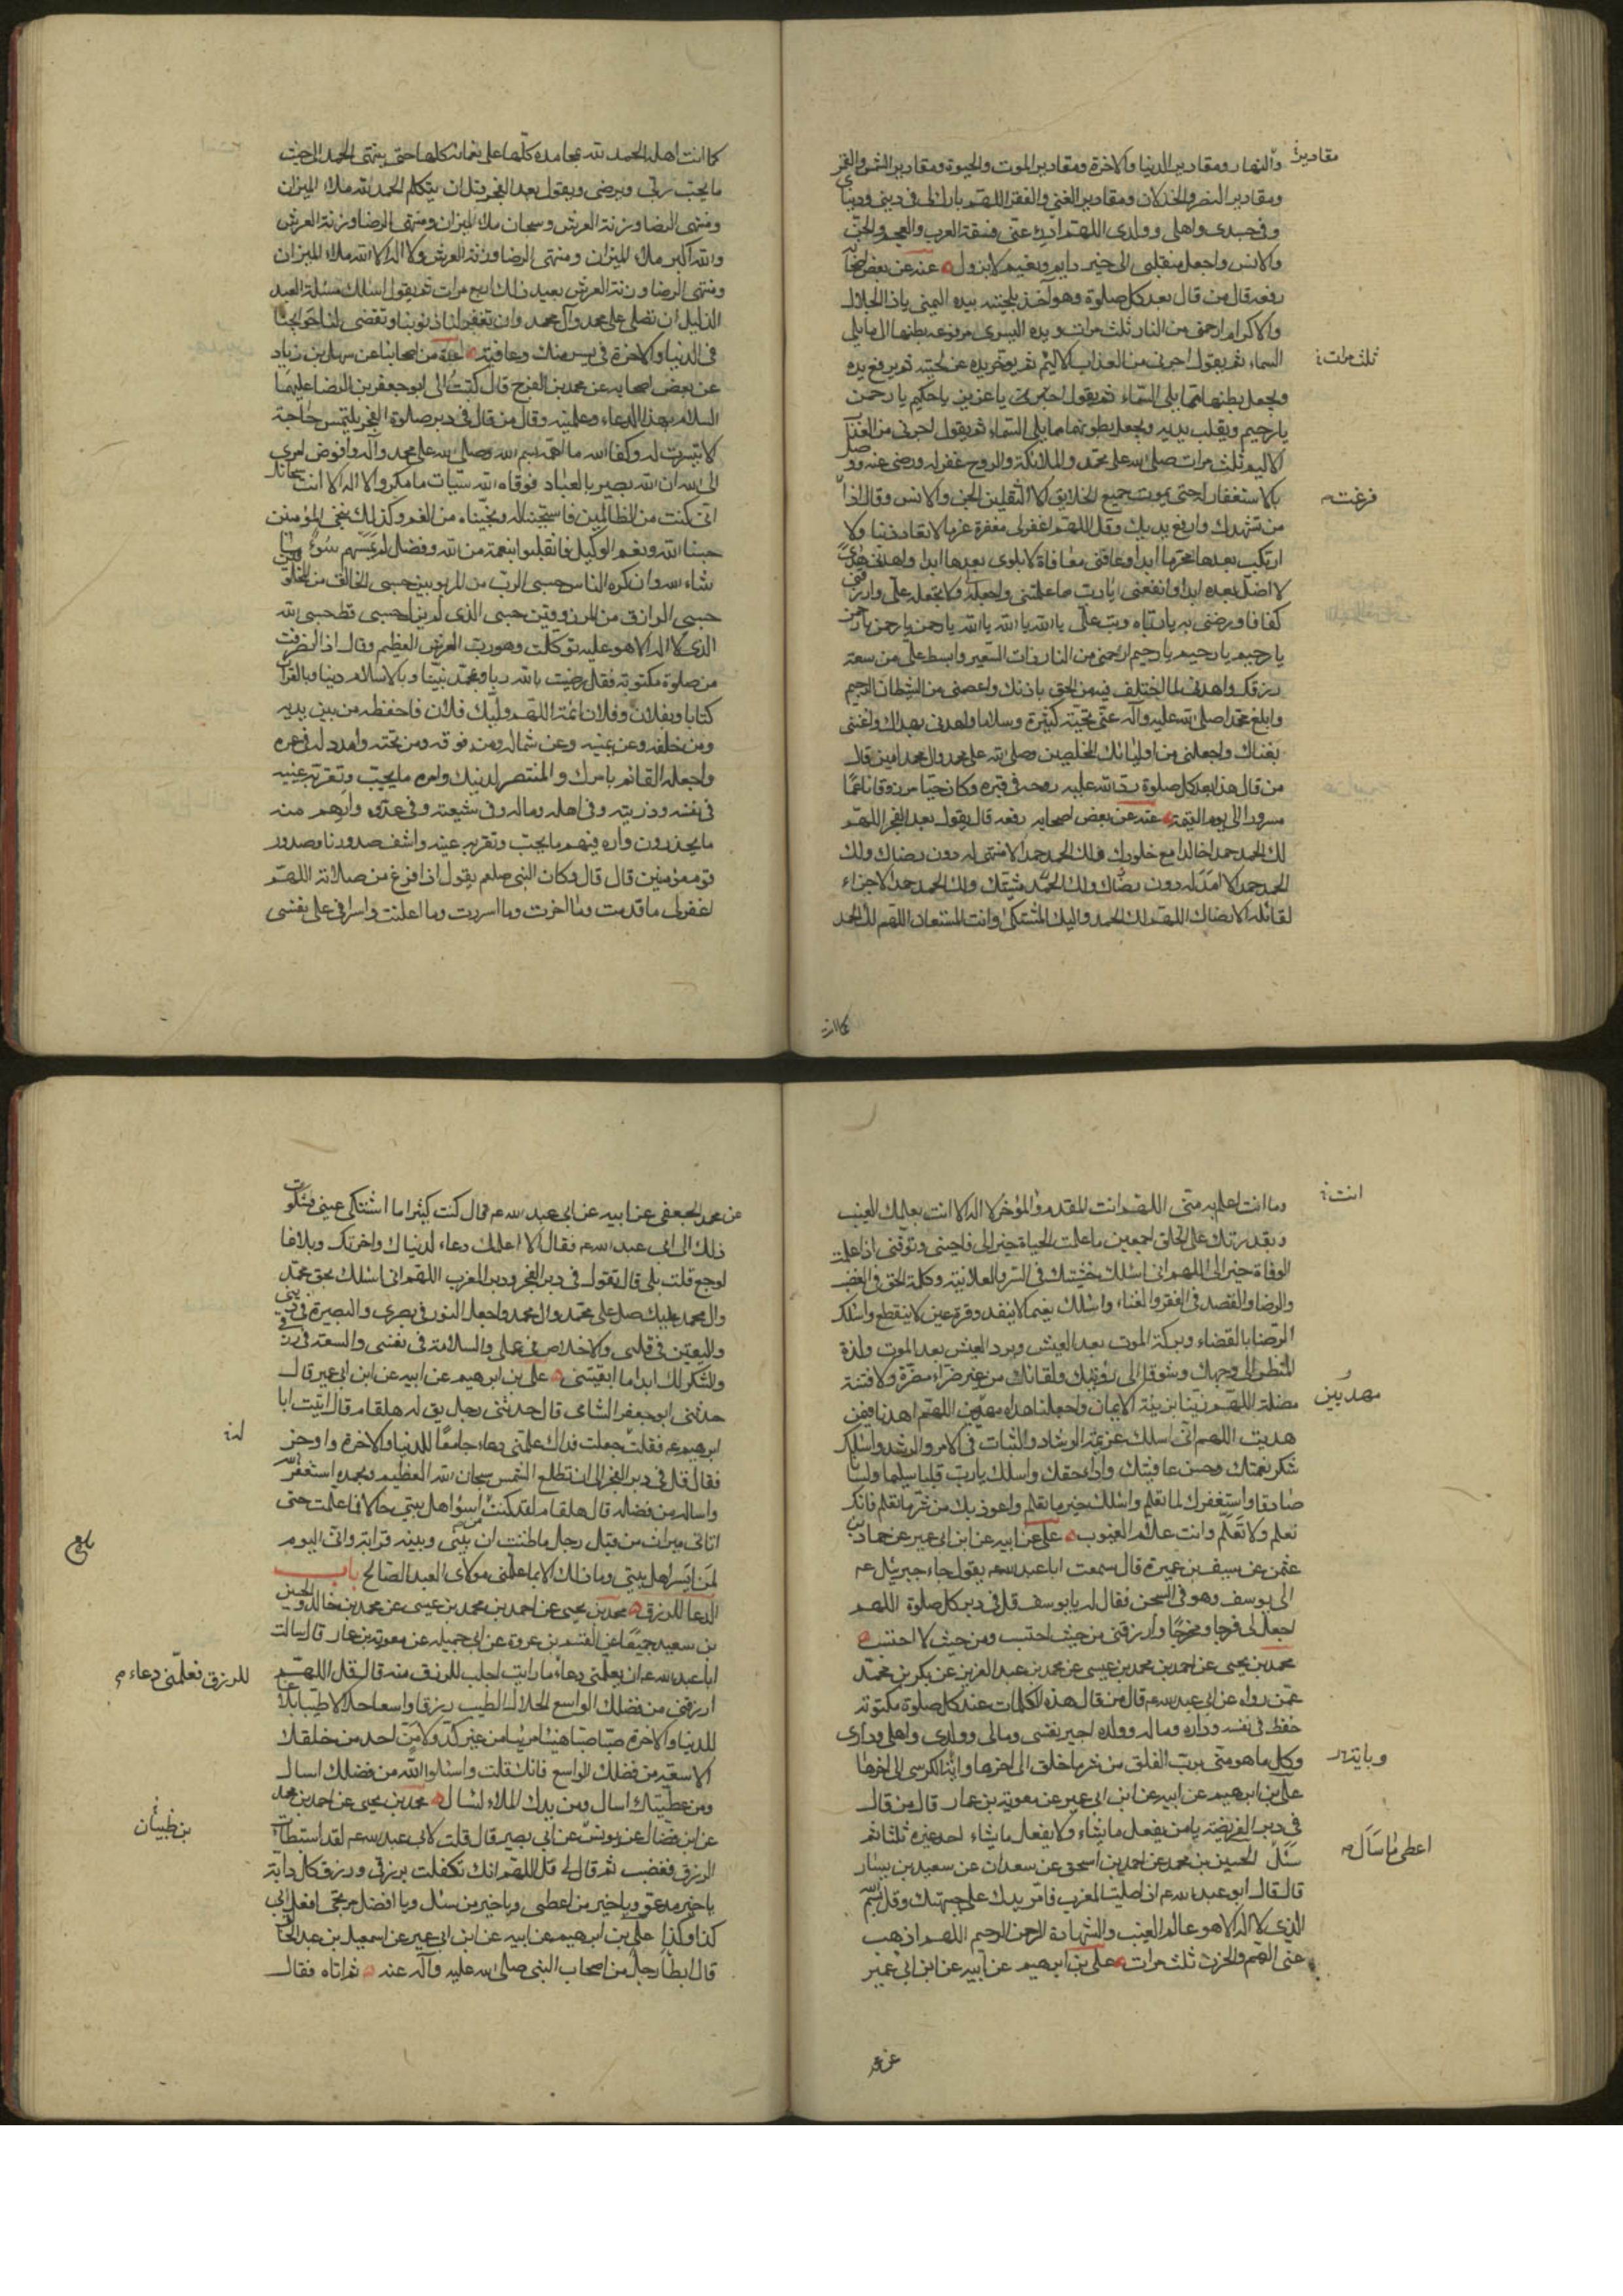 والنهار ومقادير الدنيا والاخرة ومقادير الموت والحيوة ومقادير الشمس والقمر
مقادير
ومقادير النصر والخذلان ومقادير الغنى والفقر اللهم بارك لى فى دينى ودنياى
وفى جسدى واهلى وولدى اللهم ادرء عنى فسقة العرب والعجم والجن
والانس واجعل منقلبى الى خير دايم ونعيم لا يزول عنه عن بعض اصحابه
رفعه قال من قال بعد كل صلوة وهو آخذ بلحيته بيده اليمنى ياذا الجلال
والاكرام ارحمنى من النار ثلث مرات ويده اليسرى مرفوعة بطنها الى ما يلى
السماء ثم يقول اجرنى من العذاب الاليم ثم يؤخر يده عن لحيته ثم يرفع يده
ثلث مرات
ويجعل بطنها مما يلى السماء ثم يقول يا عزيز يا كريم يا رحمن
يا رحيم ويقلب يديه ويجعل بطونهما مما يلى السماء ثم يقول اجرنى من العذاب
الاليم ثلث مرات صلى الله على محمد والملائكة والروح غفر له ورضى عنه ووصل
بالاستغفار له حتى يموت جميع الخلايق الا الثقلين الجن والانس وقال اذا
فرغت
من تشهدك وارفع يديك وقل اللهم اغفر لى مغفرة عزما لا تغادر ذنبا ولا
ارتكب بعدها محرما ابدا وعافنى معافاة لا بلوى بعدها ابدا واهدنى هدى
لا اضل بعده ابدا وانفعنى يا رب بما علمتنى واجعله لى ولا تجعله على وارزقنى
كفافا ورضنى به يا رباه وتب على يا الله يا الله يا الله يا رحمن يا رحمن يا رحمن
يا رحيم يا رحيم يا رحيم ارحمنى من النار ذات السعير وابسط على من سعة
رزقك واهدنى لما اختلف فيه من الحق باذنك واعصمنى من الشيطان الرجيم
وابلغ محمدا صلى الله عليه وآله عنى تحية كثيرة وسلاما واهدنى بهداك واغننى
بغناك واجعلنى من اوليائك المخلصين وصلى الله على محمد وال محمد امين قال
من قال هذا بعد كل صلوة رد الله عليه روحه فى قبره وكان حيا مرزوقا ناعما
مسرورا الى يوم القيمة عنه عن بعض اصحابه رفعه قال يقول بعد الفجر اللهم
لك الحمد حمدا خالدا مع خلودك ولك الحمد حمدا لا منتهى له دون رضاك ولك
الحمد حمدا لا امد له دون مشيتك ولك الحمد حمدا لا جزاء
لقائله الا رضاك اللهم لك الحمد واليك المشتكى وانت المستعان اللهم لك الحمد
كما انت
كما انت اهله الحمد لله بمحامده كلها على نعمائه كلها حتى ينتهى الحمد الى حيث
ما يحب ربى ويرضى ويقول بعد الفجر قبل ان يتكلم الحمد لله ملاء الميزان
ومنتهى الرضا وزنة العرش وسبحان الله ملاء الميزان ومنتهى الرضا وزنة العرش
والله اكبر ملاء الميزان ومنتهى الرضا وزنة العرش ولا اله الا الله ملاء الميزان
ومنتهى الرضا وزنة العرش يعيد ذلك اربع مرات ثم يقول اسئلك مسئلة العبد
الذليل ان تصلى على محمد وآل محمد وان تغفر لنا ذنوبنا وتقضى لنا حوايجنا
فى الدنيا والاخرة فى يسر منك وعافية عدة من اصحابنا عن سهل بن زياد
عن بعض اصحابه عن محمد بن الفرج قال كتب الى ابو جعفر بن الرضا عليهما
السلام بهذا الدعاء وعلمنيه وقال من قال فى دبر صلوة الفجر لم يلتمس حاجة
الا تيسرت له وكفاه الله ما اهمه بسم الله وصلى الله على محمد وآله وافوض امرى
الى الله ان الله بصير بالعباد فوقاه الله سيئات ما مكروا لا اله الا انت سبحانك
انى كنت من الظالمين فاستجبنا له ونجيناه من الغم وكذلك ننجى المؤمنين
حسبنا الله ونعم الوكيل فانقلبوا بنعمة من الله وفضل لم يمسسهم سوء ما شاء
شاء الله وان كره الناس حسبى الرب من المربوبين حسبى الخالق من المخلوقين
حسبى الرازق من المرزوقين حسبى الذى لم يزل حسبى قط حسبى الله
الذى لا اله الا هو عليه توكلت وهو رب العرش العظيم وقال اذا انصرفت
من صلوة مكتوبة فقل رضيت بالله ربا وبمحمد نبيا وبالاسلام دينا وبالقران
كتابا وبفلان وفلان ائمة اللهم وليك فلان فاحفظه من بين يديه
ومن خلفه وعن يمينه وعن شماله ومن فوقه ومن تحته وامدد له فى عمره
واجعله القائم بامرك والمنتصر لدينك واره ما يحب وتقر به عينه
فى نفسه وذريته وفى اهله وماله وفى شيعته وفى عدوه وارهم منه
ما يحذرون واره فيهم ما يحب وتقر به عينه واشف صدورنا وصدور
قوم مؤمنين قال قال وكان النبى صلعم يقول اذا فرغ من صلاته اللهم
اغفر لى ما قدمت وما اخرت وما اسررت وما اعلنت واسرافى على نفسى
وما انت اعلم به منى اللهم انت المقدم والمؤخر لا اله الا انت بعلمك الغيب
انت
وبقدرتك على الخلق اجمعين ما علمت الحياة خيرا لى فاحينى وتوفنى اذا علمت
الوفاة خيرا لى اللهم انى اسئلك خشيتك فى السر والعلانية وكلمة الحق فى الغضب
والرضا والقصد فى الفقر والغناء واسئلك نعيما لا ينفد وقرة عين لا ينقطع واسئلك
الرضا بالقضاء وبركة الموت بعد العيش وبرد العيش بعد الموت ولذة
المنظر الى وجهك وشوقا الى رؤيتك ولقائك من غير ضراء مضرة ولا فتنة
مضلة اللهم زينا بزينة الايمان واجعلنا هداة مهديين اللهم اهدنا فيمن
مهديين
هديت اللهم انى اسئلك عزيمة الرشاد والثبات فى الامر والرشد واسئلك
شكر نعمتك وحسن عافيتك واداء حقك واسئلك يا رب قلبا سليما ولسانا
صادقا واستغفرك لما تعلم واسئلك خير ما تعلم واعوذ بك من شر ما تعلم فانك
تعلم ولا نعلم وانت علام الغيوب على عن ابيه عن ابن ابى عمير عن حماد بن
عثمن عن سيف بن عميرة قال سمعت ابا عبد الله ع يقول جاء جبرئيل ع
الى يوسف وهو فى السجن فقال له يا يوسف قل فى دبر كل صلوة اللهم
اجعل لى فرجا ومخرجا وارزقنى من حيث احتسب ومن حيث لا احتسب
محمد بن يحيى عن احمد بن محمد بن عيسى عن محمد بن عبد العزيز عن بكر بن محمد
عمن رواه عن ابى عبد الله ع قال من قال هذه الكلمات عند كل صلوة مكتوبة
حفظ فى نفسه وداره وماله وولده اجير نفسى ومالى وولدى واهلى ودارى
وكل ما هو منى برب الفلق من شر ما خلق الى اخرها واية الكرسى الى اخرها
على بن ابرهيم عن ابيه عن ابن ابى عمير عن معوية بن عمار قال من قال
فى دبر الفريضة يا من يفعل ما يشاء ولا يفعل ما يشاء احد غيره ثلثا ثم
سئل الحسين بن محمد عن احمد بن اسحق عن سعدان عن سعيد بن يسار
اعطى ما سأل
قال قال ابو عبد الله ع اذا صليت المغرب فامر يدك على جبهتك وقل بسم الله
الذى لا اله الا هو عالم الغيب والشهادة الرحمن الرحيم اللهم اذهب
عنى الهم والحزن ثلث مرات على بن ابرهيم عن ابيه عن ابن ابى عمير
عن محمد الجعفى عن ابيه عن ابى عبد الله ع قال كنت كثيرا ما اشتكى عينى فشكوت
ذلك الى ابى عبد الله ع فقال الا اعلمك دعاء لدنياك واخرتك وبلاغا
لوجع قلت بلى قال تقول فى دبر الفجر ودبر المغرب اللهم انى اسئلك بحق محمد
وال محمد عليك صل على محمد وال محمد واجعل النور فى بصرى والبصيرة فى دينى
واليقين فى قلبى والاخلاص فى عملى والسلامة فى نفسى والسعة فى رزقى
والشكر لك ابدا ما ابقيتنى على بن ابرهيم عن ابيه عن ابن ابى عمير قال
حدثنى ابو جعفر الشامى قال حدثنى رجل يق له هلقام قال اتيت ابا
ابرهيم ع فقلت جعلت فداك علمنى دعاء جامعا للدنيا والاخرة واوجز
فقال قل فى دبر الفجر الى ان تطلع الشمس سبحان الله العظيم وبحمده استغفر الله
واساله من فضله قال هلقام لقد كنت اسوء اهل بيتى حالا فما علمت حتى
اتانى ميراث من قبل رجل ما ظننت ان بينى وبينه قرابة وانى اليوم
لمن ايسر اهل بيتى وما ذلك الا بما علمنى مولاى العبد الصالح باب
الدعا للرزق محمد بن يحيى عن احمد بن محمد بن عيسى عن محمد بن خالد والحسين
بن سعيد جميعا عن القسم بن عروة عن ابى جميلة عن معوية بن عمار قال سالت
ابا عبد الله ع ان يعلمنى دعاء ما رايت اجلب للرزق منه قال قل اللهم
للرزق فعلمنى دعاء
ارزقنى من فضلك الواسع الحلال الطيب رزقا واسعا حلالا طيبا بلاغا
للدنيا والاخرة صبا صبا هنيئا مريئا من غير كد ولا من احد من خلقك
الا سعة من فضلك الواسع فانك قلت واسئلوا الله من فضله فمن فضلك اسال
ومن عطيتك اسال ومن يدك الملاء اسال محمد بن يحيى عن احمد بن محمد
عن ابن فضال عن يونس عن ابى بصير قال قلت لابى عبد الله ع لقد استبطات
الرزق فغضب ثم قال لى قل اللهم انك تكفلت برزقى ورزق كل دابة
يا خير مدعو ويا خير من اعطى ويا خير من سئل ويا افضل مرتجى افعل بى
كذا وكذا على بن ابرهيم عن ابيه عن ابن ابى عمير عن اسمعيل بن عبد الخالق
قال ابطأ رجل من اصحاب النبى صلى الله عليه وآله عنه ثم اتاه فقال